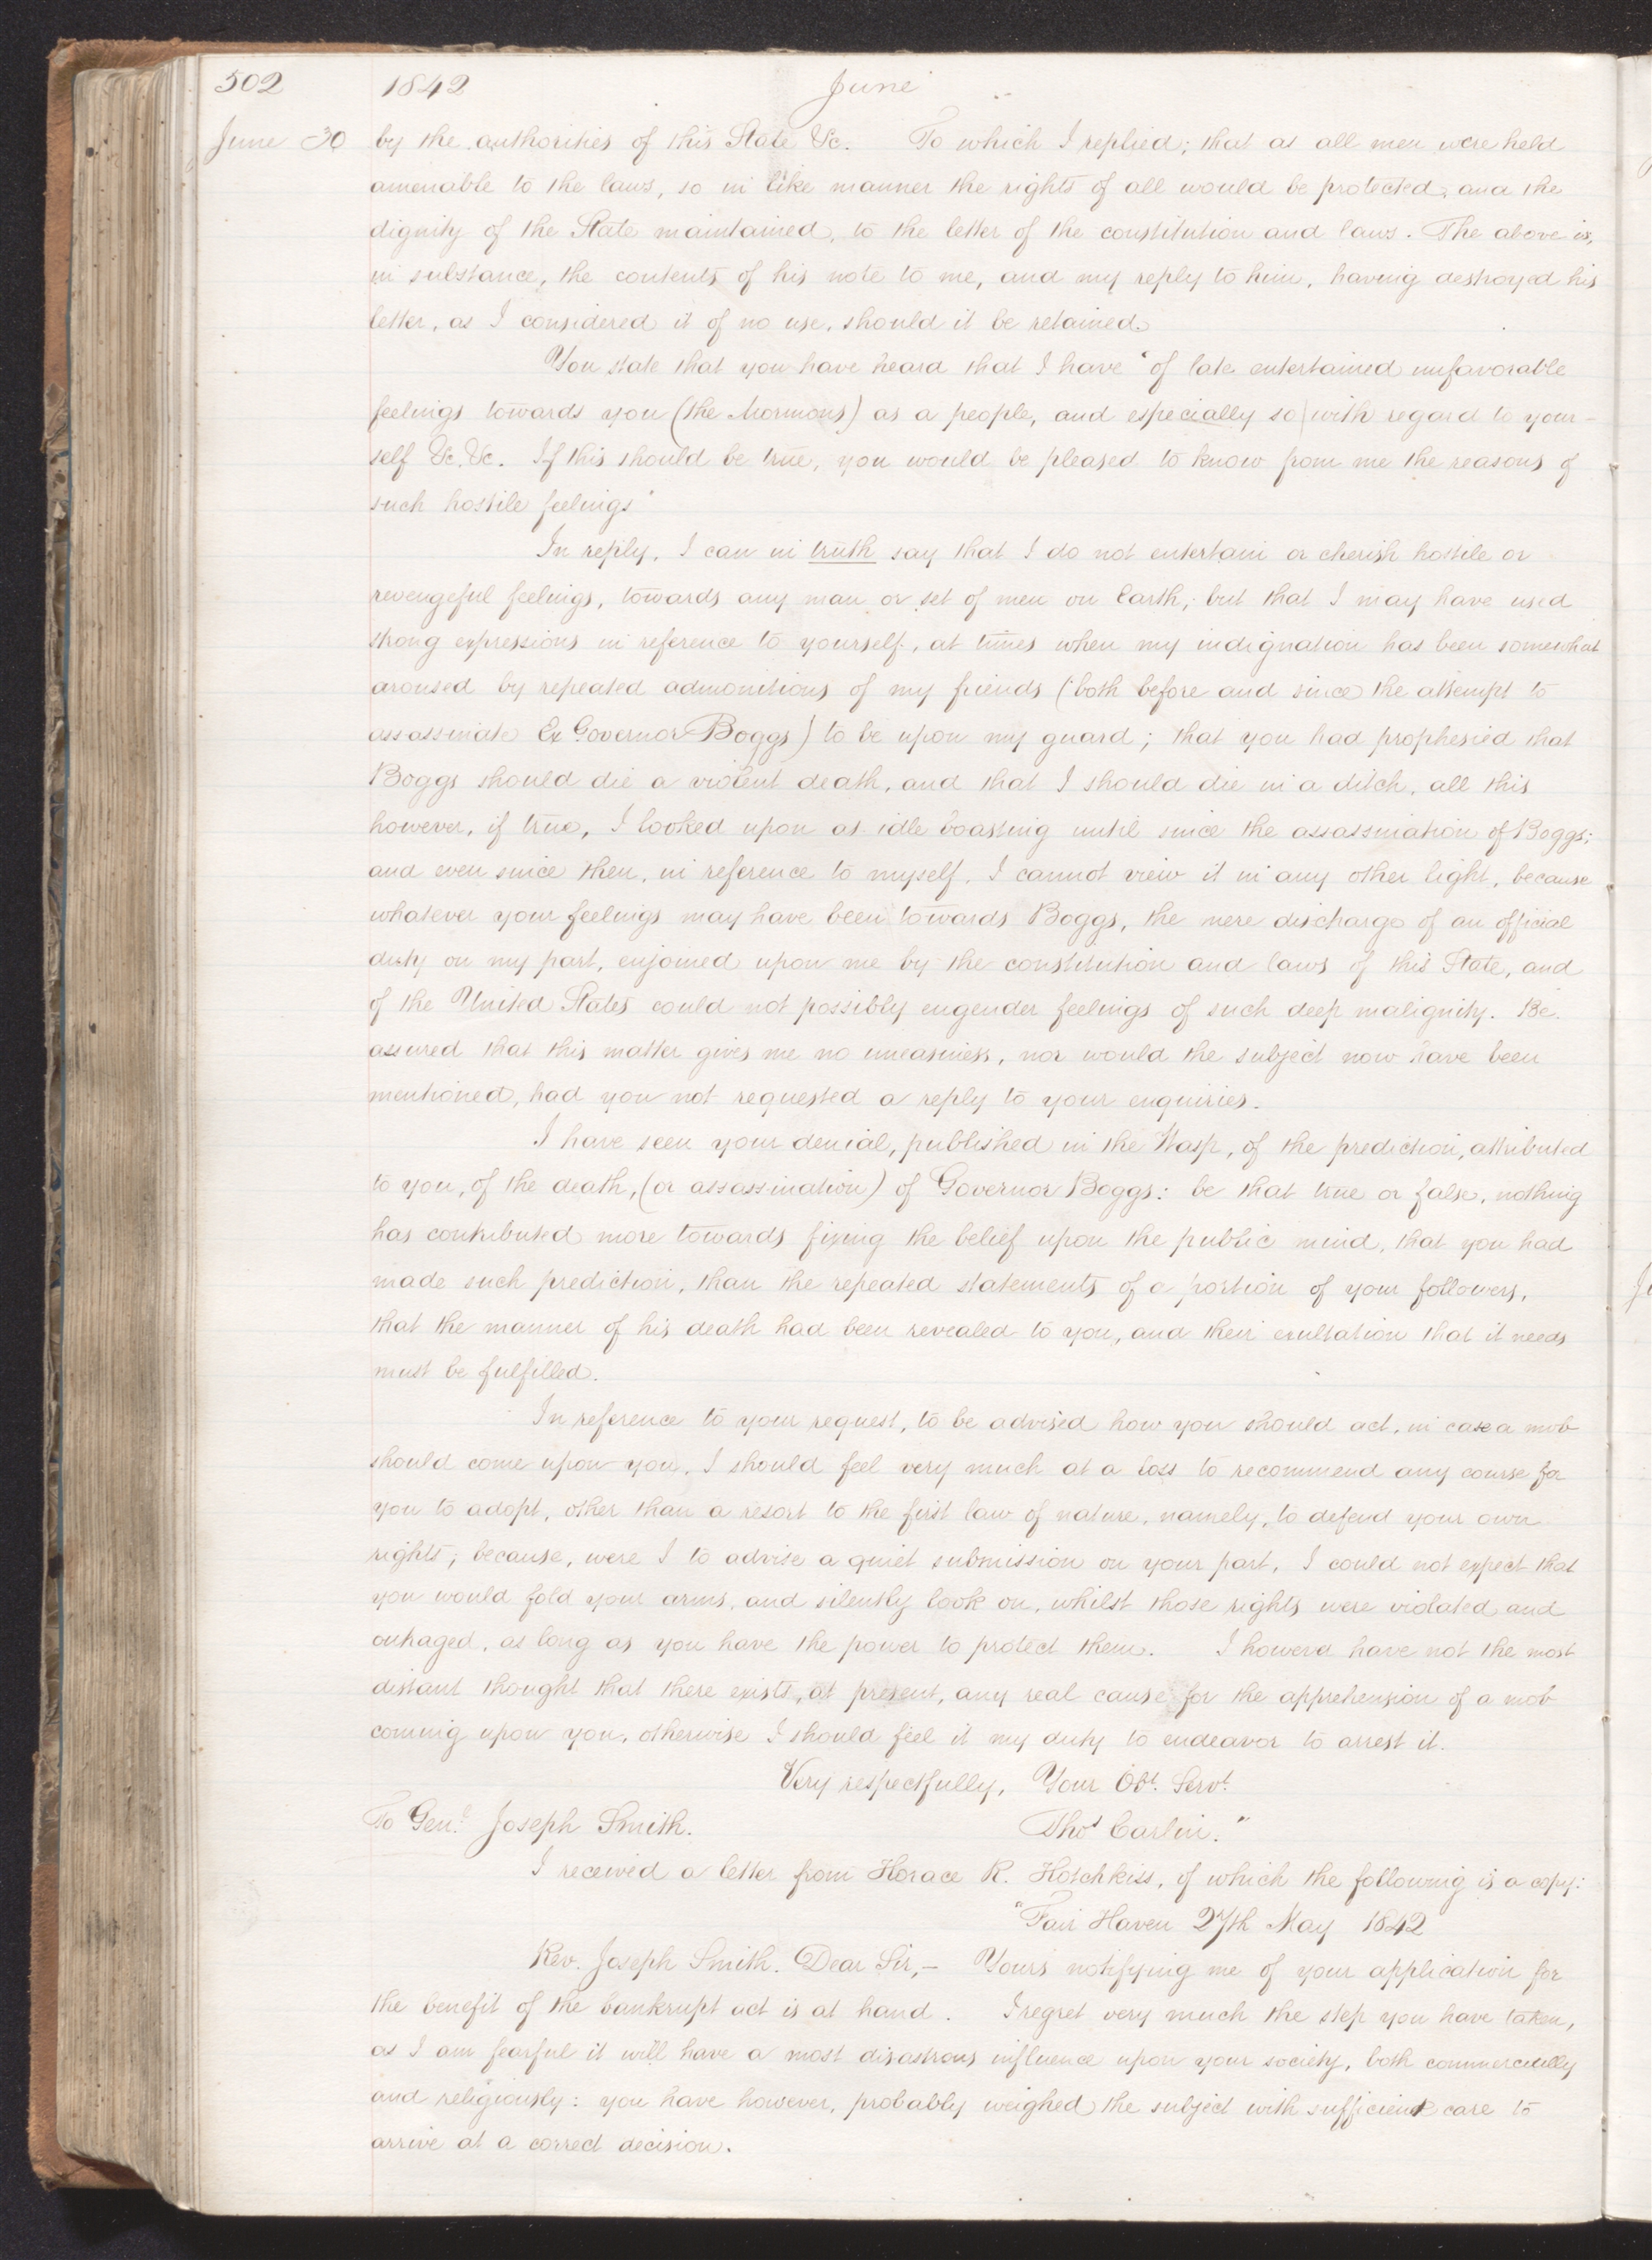 502 1842 June
June 30 by the authorities of this State &c. To which I replied; that as all men were held
amenable to the laws, so in like manner the rights of all would be protected, and the
dignity of the State maintained, to the letter of the constitution and laws. The above is,
in substance, the contents of his note to me, and my reply to him, having destroyed his
letter, as I considered it of no use, should it be retained.
You state that you have heard that I have "of late entertained unfavorable
feelings towards you (the Mormons) as a people, and especially so with regard to your-
self &c. &c. If this should be true, you would be pleased to know from me the reasons of
such hostile feelings"
In reply, I can in truth say that I do not entertain or cherish hostile or
revengeful feelings, towards any man or set of men on Earth; but that I may have used
strong expressions in reference to yourself, at times when my indignation has been somewhat
aroused by repeated admonitions of my friends (both before and since the attempt to
assassinate Ex Governor Boggs) to be upon my guard; that you had prophesied that
Boggs should die a violent death, and that I should die in a ditch, all this
however, if true, I looked upon as idle boasting until since the assassination of Boggs;
and even since then, in reference to myself, I cannot view it in any other light, because
whatever your feelings may have been towards Boggs, the mere discharge of an official
duty on my part, enjoined upon me by the constitution and laws of this State, and
of the United States could not possibly engender feelings of such deep malignity. Be
assured that this matter gives me no uneasiness, nor would the subject now have been
mentioned, had you not requested a reply to your enquiries.
I have seen your denial, published in the Wasp, of the prediction, attributed
to you, of the death, (or assassination) of Governor Boggs: be that true or false, nothing
has contributed more towards fixing the belief upon the public mind, that you had
made such prediction, than the repeated statements of a portion of your followers,
that the manner of his death had been revealed to you, and their exultation that it needs
must be fulfilled.
In reference to your request, to be advised how you should act, in case a mob
should come upon you, I should feel very much at a loss to recommend any course for
you to adopt, other than a resort to the first law of nature, namely, to defend your own
rights; because, were I to advise a quiet submission on your part, I could not expect that
you would fold your arms, and silently look on, whilst those rights were violated and
outraged, as long as you have the power to protect them. I however have not the most
distant thought that there exists, at present, any real cause for the apprehension of a mob
coming upon you, otherwise I should feel it my duty to endeavor to arrest it.
Very respectfully, Your Obt. Servt.
To Genl. Joseph Smith. Thos Carlin."
I received a letter from Horace R. Hotchkiss, of which the following is a copy:
"Fair Haven 27th May 1842
Rev. Joseph Smith. Dear Sir,— Yours notifying me of your application for
the benefit of the bankrupt act is at hand. I regret very much the step you have taken,
as I am fearful it will have a most disastrous influence upon your society, both commercially
and religiously: you have however, probably weighed the subject with sufficient care to
arrive at a correct decision.